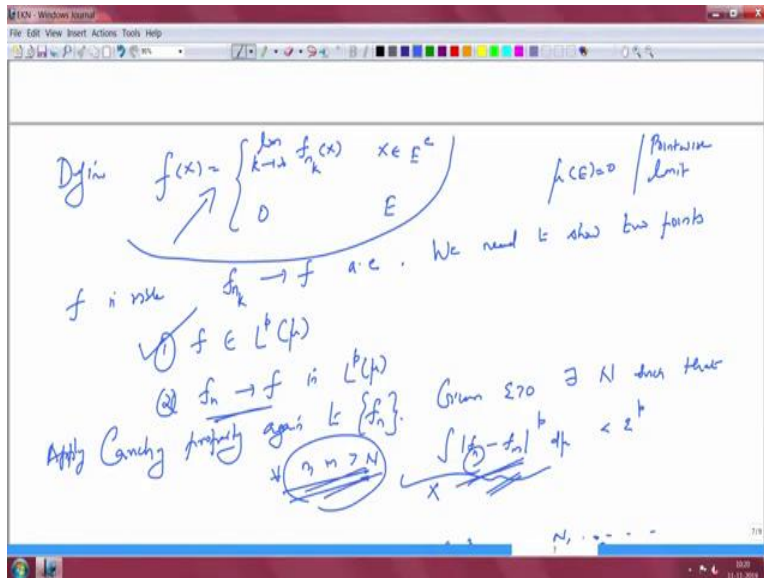 EKN - Windows Journal
File Edit View Insert Actions Tools Help
Define f(x) = { lim k→∞ f_{n_k}(x) x ∈ E^c
0 E
μ(E)=0 / Pointwise limit
f is msble f_{n_k} → f a.e. We need to show two points
① f ∈ L^p(μ)
② f_n → f in L^p(μ)
Apply Cauchy property again to {f_n}. Given ε>0 ∃ N such that
∀ n, m > N ∫_X |f_m - f_n|^p dμ < ε^p
7/9
10:20
11-11-2016